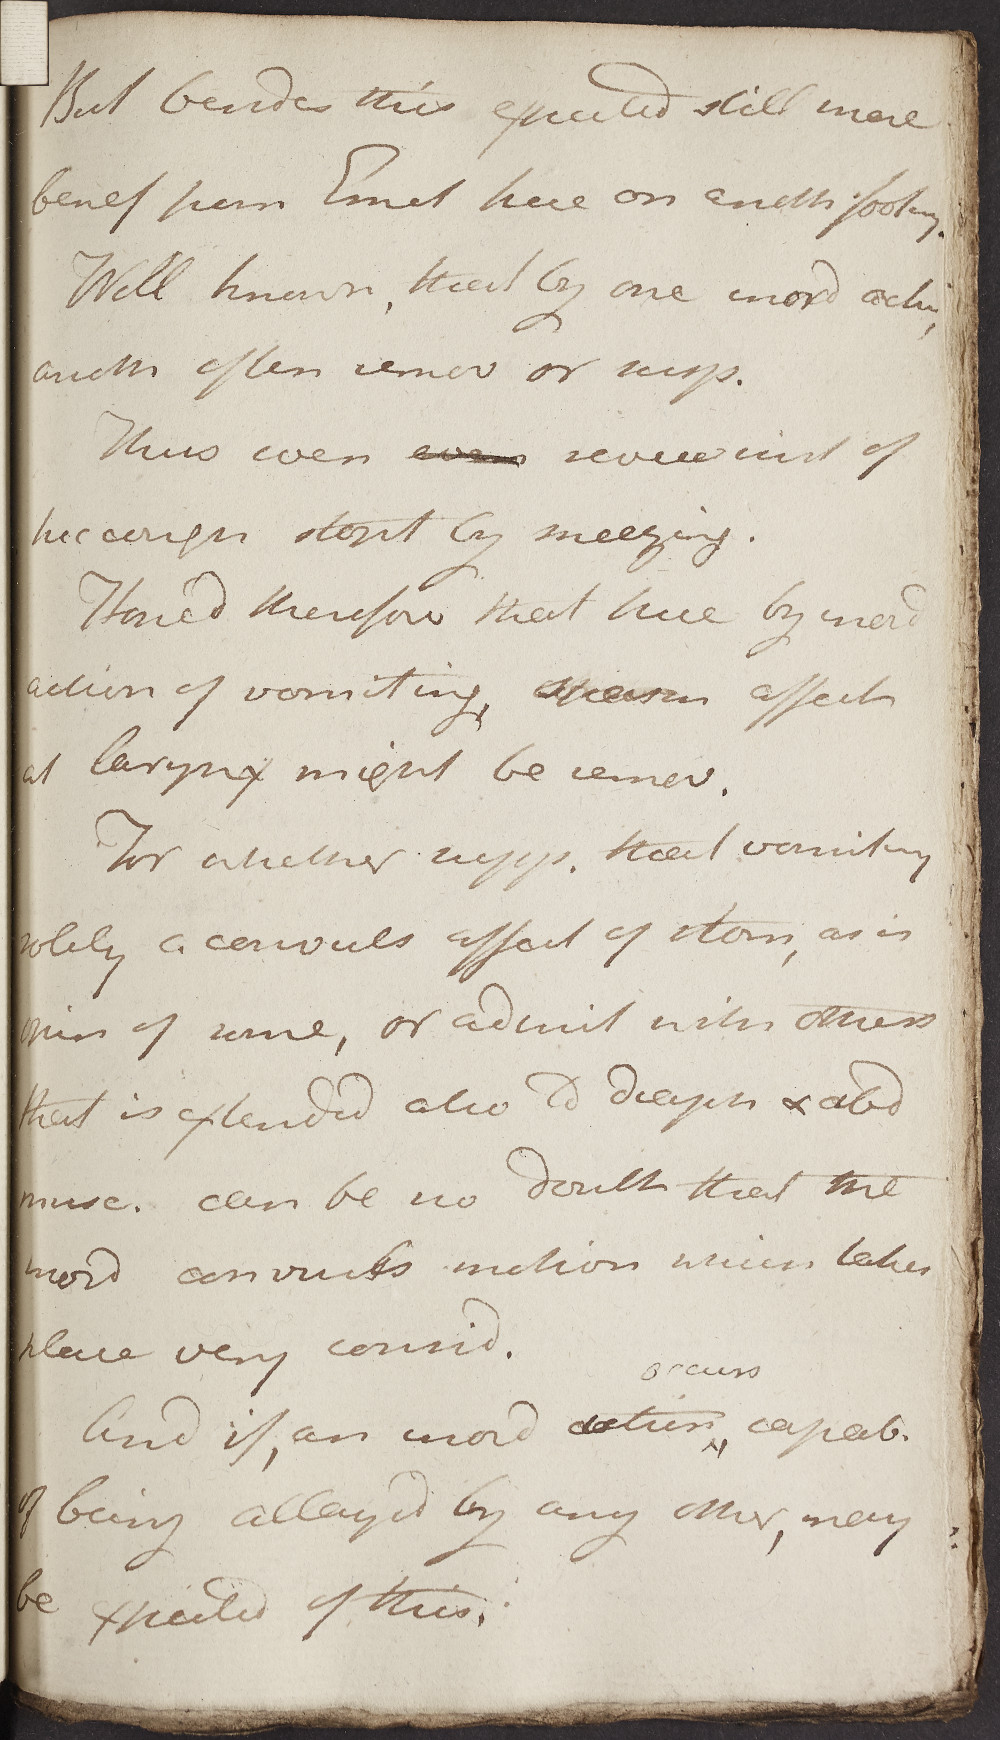 But besides this expected still more
benef from Emet here on anoth footing.
Well known, that by one inord actin,
anoth often remov or susp.
Thus even even severe inst of
hiccough stopt by sneezing.
Hoped therefore that here by inord
action of vomiting, spasm affect
at larynx might be remov.
For whether supp. that vomiting
solely a convuls affect of stom, as is
opin of some, or admit with others
that is extended also to diaph & abd
musc. can be no doubt that the
inord convuls motion which takes
place very consid.
occurs
And if, an inord action, capab.
of being allay'd by any other, may
be expected of this.